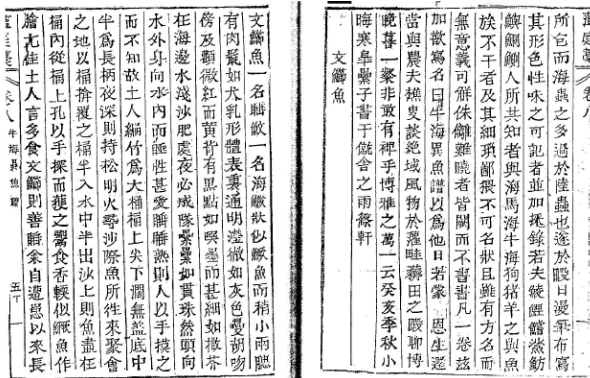 藫庭藁 卷八
所宅而海蟲之多過於陸蟲也遂於暇日漫筆布寫
其形色性味之可記者並加採錄若夫鯪鯉鱨鯊魴
鱮鮦鰂人所共知者與海馬海牛海狗猪羊之與魚
族不干者及其細瑣鄙猥不可名狀且雖有方名而
無意義可解侏離難曉者皆闕而不書書凡一卷玆
加敲寫名曰牛海異魚譜以爲他日若蒙 恩生還
當與農夫樵叟談絶域風物於灌畦耡田之暇聊博
晩暮一粲非敢有裨乎博雅之萬一云癸亥季秋小
晦寒皐纍子書于僦舍之雨篠軒
文鰤魚
文鰤魚一名睡鮫一名海鱖狀似鱖魚而稍小兩腮
有肉鬣如犬乳形體表裏通明瀅徹如灰色疊胡吻
傍及顴微紅而黃背有黑點如喫墨而甚細如撒芥
在海邊水淺沙肥處夜必成隊纍纍如貫珠然頭向
水外身向水內而睡性甚愛睡睡熟則人以手摸之
而不知故土人編竹爲大桶桶上尖下濶無盖底中
半爲長柄夜深則持松明火尋沙際魚所徃來聚會
之地以桶揜覆之桶半入水中半出沙上則魚盡在
桶內從桶上孔以手探而獲之臠食香輭似鱖魚作
膾尤佳土人言多食文鰤則善睡余自遭患以來長
藫庭藁 卷八 牛海異魚譜 五十